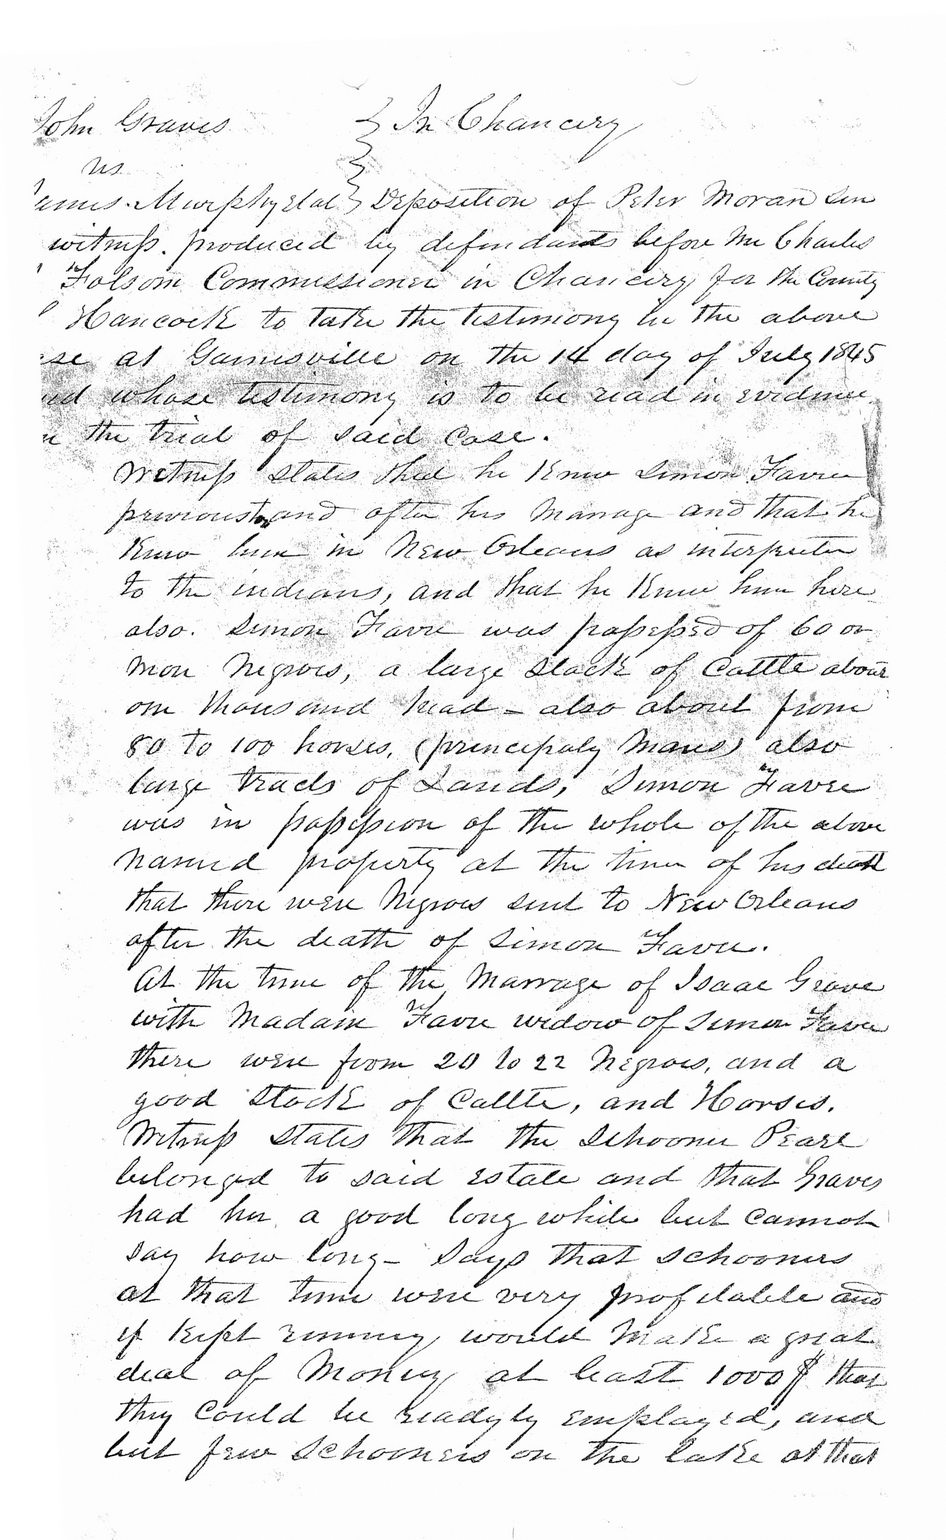 John Graves } In Chancery
vs }
Murphy et al } Deposition of Peter Moran Sen
witness produced by defendants before me Charles
Folsom Commissioner in Chancery for the County
Hancock to take the testimony in the above
se at Gainesville on the 14 day of July 1845
whose testimony is to be read in evidence
the trial of said case.
Witness states that he Knew Simon Favre
previous and after his Marrage and that he
Knew him in New Orleans as interpreter
to the indians, and that he Knew him here
also. Simon Favre was possessed of 60 or
more Negroes, a large Stock of Cattle about
one thousand head – also about from
80 to 100 horses, (principaly Mares) also
large tracts of Lands, Simon Favre
was in possession of the whole of the above
named property at the time of his death
that there were Negroes sent to New Orleans
after the death of Simon Favre.
At the time of the Marrage of Isaac Grave
with Madam Favre widow of Simon Favre
there were from 20 to 22 Negroes, and a
good Stock of Cattle, and Horses.
Witness States that the Schooner Pearl
belonged to said estate and that Graves
had her a good long while but cannot
say how long – Says that schooners
at that time were very profitable and
if Kept runing would Make a great
deal of Money at least 1000$ that
they could be readyly employed, and
but few Schooners on the lake at that